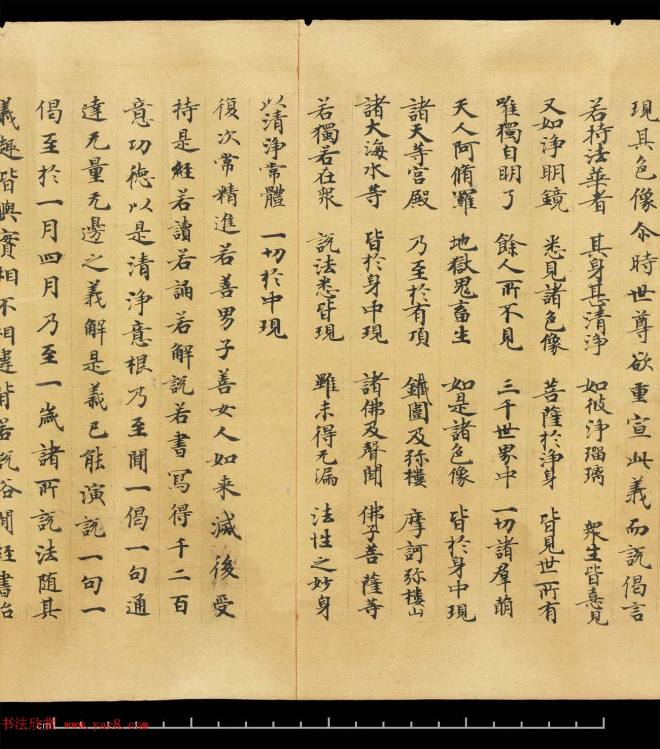 現其色像尒時世尊欲重宣此義而說偈言
若持法華者 其身甚清淨 如彼淨瑠璃 衆生皆憙見
又如淨明鏡 悉見諸色像 菩薩於淨身 皆見世所有
唯獨自明了 餘人所不見 三千世界中 一切諸羣萌
天人阿脩羅 地獄鬼畜生 如是諸色像 皆於身中現
諸天等宮殿 乃至於有頂 鐵圍及弥樓 摩訶弥樓山
諸大海水等 皆於身中現 諸佛及聲聞 佛子菩薩等
若獨若在衆 說法悉皆現 雖未得无漏 法性之妙身
以清淨常體 一切於中現
復次常精進若善男子善女人如来滅後受
持是經若讀若誦若解說若書寫得千二百
意功德以是清淨意根乃至聞一偈一句通
達无量无邊之義解是義已能演說一句一
偈至於一月四月乃至一歲諸所說法隨其
義趣皆與實相不相違背若說俗間經書治
书法欣赏 www.yac8.com
cm